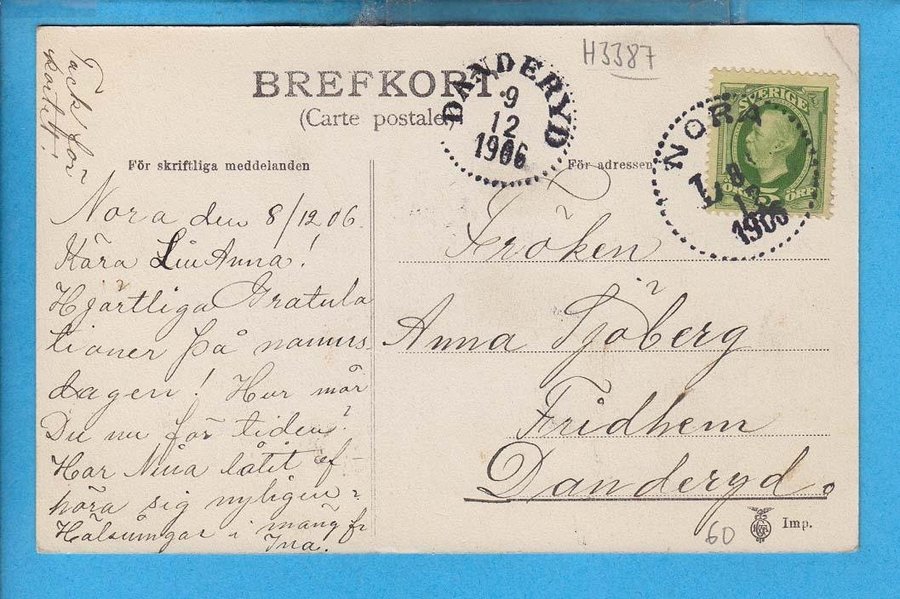 Tack för
kortet!
H3387
BREFKORT
(Carte postale)
DANDERYD
9
12
1906
SVERIGE
ÖRE
NORA
8
12
1906
För skriftliga meddelanden
För adressen
Nora den 8/12 06.
Kära Lin Anna!
Hjärtliga Gratula
tioner på namns
dagen! Hur mår
Du nu för tiden?
Har Nina låtit af
höra sig nyligen?
Hälsningar i mäng fr
Ina.
Fröken
Anna Sjöberg
Fridhem
Danderyd.
60
Imp.